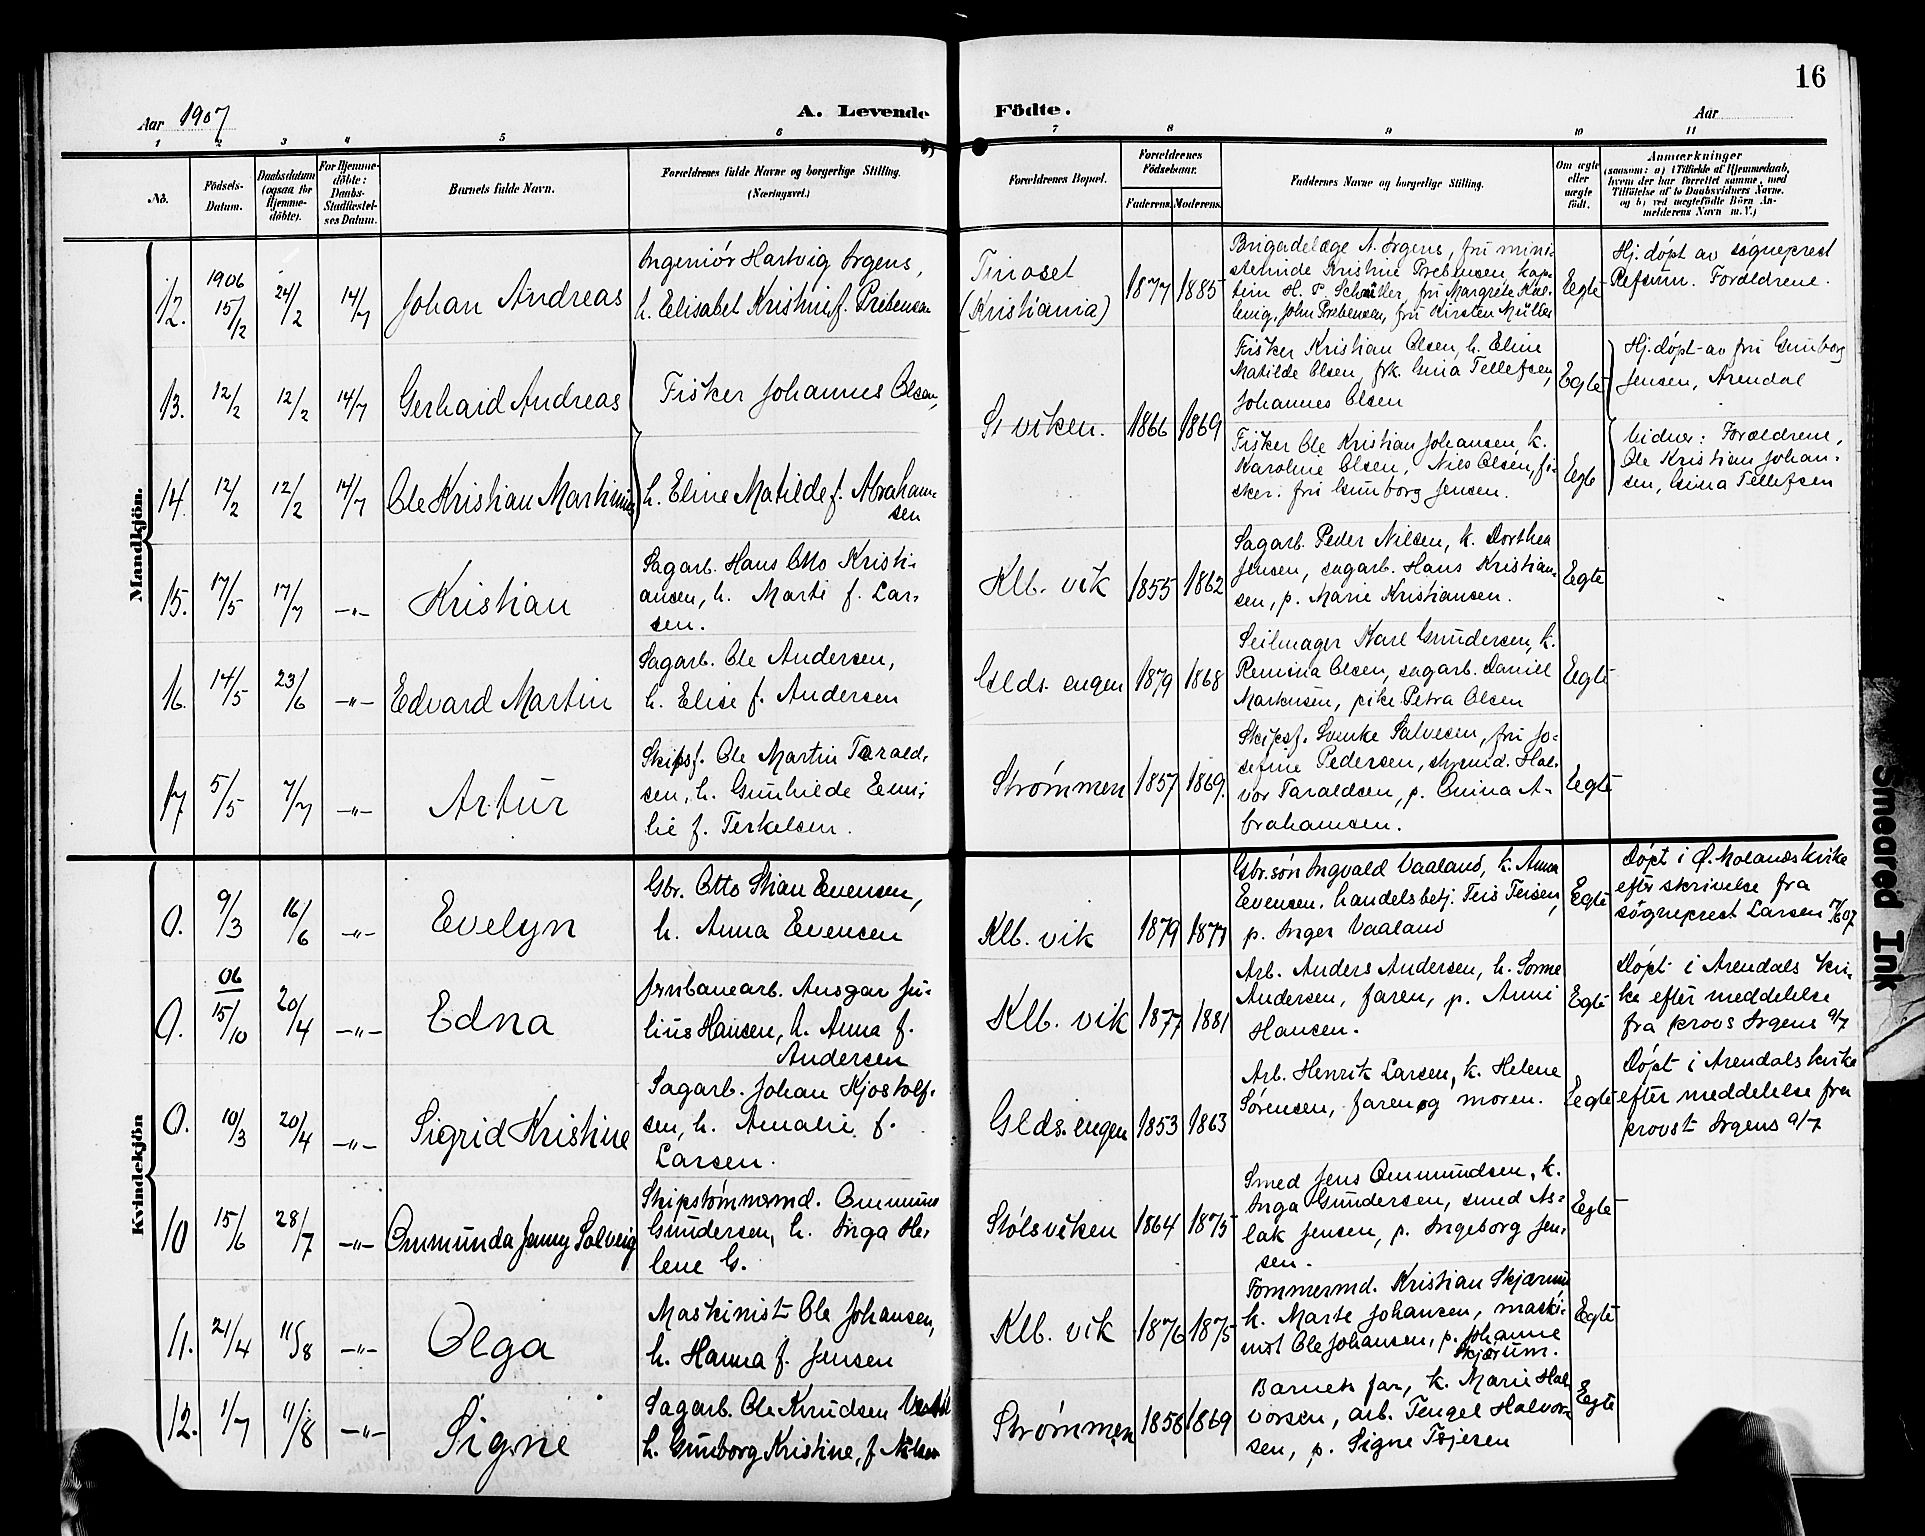 16
Aar 1907
A. Levende Födte.
Aar
1 2 3 4 5 6 7 8 9 10 11
No.
Födsels-Datum.
Daabsdatum (ogsaa for Hjemme-döbte).
For Hjemme-döbte: Daabs-Stadfæstel-ses Datum.
Barnets fulde Navn.
Forældrenes fulde Navne og borgerlige Stilling.
(Næringsvei.)
Forældrenes Bopæl.
Forældrenes Födselsaar.
Faderens. Moderens.
Faddernes Navne og borgerlige Stilling.
Om ægte eller uægte födt.
Anmærkninger
(saasom: a) i Tilfælde af Hjemmedaab,
hvem der har forrettet samme, med
Tilføielse af to Daabsvidners Navne.
og b) ved uægtefödte Börn An-
melderens Navn m. V.)
Mandkjön.
12. 1906 15/2 24/2 14/7 Johan Andreas
Ingeniør Hartvig Irgens,
h. Elisabet Kristine f. Prebensen
Tinoset
(Kristiania)
1877 1885
Brigadelæge A. Irgens, fru mini-
sterinde Kristine Prebensen, kap-
tein H. P. Schøller, fru Margrete
John Prebensen, fru Kirsten Müller
Egte
Hj. døpt av sogneprest
Refsum. Forældrene.
13. 12/2 12/2 14/7 Gerhard Andreas
Fisker Johannes Olsen,
St viken. 1866 1869
Fisker Kristian Olsen, h. Eline
Matilde Olsen, frk. Gina Tellefsen,
Johannes Olsen
Egte
Hj. døpt av fru Gunborg
Jensen, Arendal
14. 12/2 12/2 14/7 Ole Kristian Martinius
h. Eline Matilde f. Abraham-
sen
Fisker Ole Kristian Johansen, k.
Karoline Olsen, Nils Olsen, fi-
sker. fru Gunborg Jensen.
Egte
Vidner: Forældrene,
Ole Kristian Johan-
sen, Gina Tellefsen
15. 17/5 17/7 -"- Kristian
Sagarb. Hans Otto Kristi-
ansen, h. Marte f. Lar-
sen.
Klb. vik 1855 1862
Sagarb. Peder Nilsen, k. Dorthea
Jensen, sagarb. Hans Kristian-
sen, p. Marie Kristiansen.
Egte
16. 14/5 23/6 -"- Edvard Martin
Sagarb. Ole Andersen,
h. Elise f. Andersen
Glds. engen 1879 1868
Seilmager Karl Gundersen, k.
Olsen, sagarb. Daniel
Markusen, pike Petra Olsen
Egte
17 5/5 7/7 -"- Artur
Skipsf. Ole Martin Tarald-
sen, h. Gunhilde Emi-
lie f. Terkelsen.
Strømmen 1857 1869.
Skipsf. Svenke Salvesen, fru Jo-
sefine Pedersen, skremd. Hal-
vor Taraldsen, p. Omina A-
brahamsen.
Egte
Kvindekjön
0. 9/3 16/6 -"- Evelyn
Gbr. Otto Stian Evensen,
h. Anna Evensen
Klb. vik 1879 1877
Gbr.søn Ingvald Vaaland, k. Anna
Evensen, handelsbetj. Teis Teisen,
p. Inger Vaaland
Egte
Døpt i Ø. Molands kirke
efter skrivelse fra
sogneprest Larsen 17/6 07
0. 06 15/10 20/4 -"- Edna
Jernbanearb. Ansgar Ju-
lius Hansen, h. Anna f.
Andersen
Klb. vik 1877 1881
Arb. Anders Andersen, h. Sonne
Andersen, faren, p. Anni
Hansen.
Egte
Døpt i Arendals kir-
ke efter meddelelse
fra provs Irgens 9/7
0. 10/3 20/4 -"- Sigrid Kristine
Sagarb. Johan Kjostolf-
sen, h. Amalie f.
Larsen.
Glds. engen 1853 1863
Arb. Henrik Larsen, k. Helene
Sørensen, faren og moren.
Egte
Døpt i Arendals kirke
efter meddelelse fra
provst Irgens 9/7
10 15/6 28/7 -"- Ommunda Jenny Solveig
Skipstømmermd. Ommund
Gundersen, h. Inga He-
lene G.
Stølsviken 1864 1875
Smed Jens Ommundsen, k.
Inga Gundersen, smed As-
lak Jensen, p. Ingeborg Jen-
sen.
Egte
11. 21/4 11/8 -"- Olga
Maskinist Ole Johansen,
h. Hanna f. Jensen
Klb. vik 1876 1875
Tømmermd. Kristian Skjærum
h. Marte Johansen, maski-
nist Ole Johansen, p. Johanne
Skjærum.
Egte
12. 1/7 11/8 -"- Signe
Sagarb. Ole Knudsen
h. Gunborg Kristine, f. Nilsen
Strømmen 1858 1869
Barnets far, k. Marie Hal-
vorsen, arb. Tengel Halvor-
sen, p. Signe Terjesen
Egte
Smeared Ink